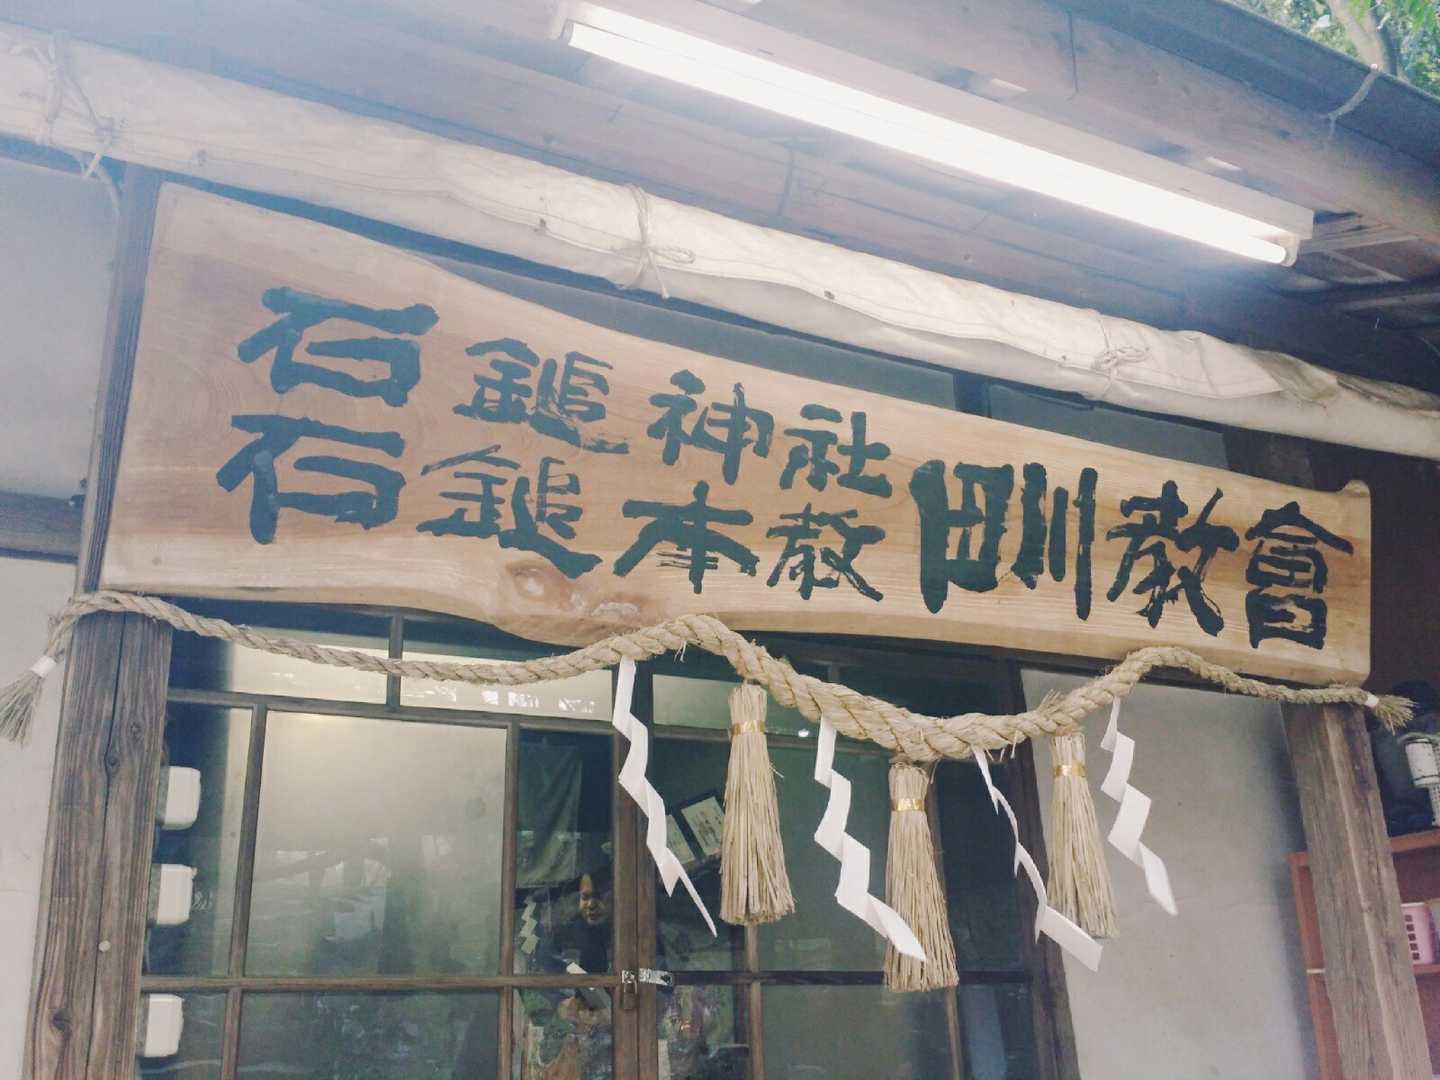 石鎚神社
石鎚本教
教會